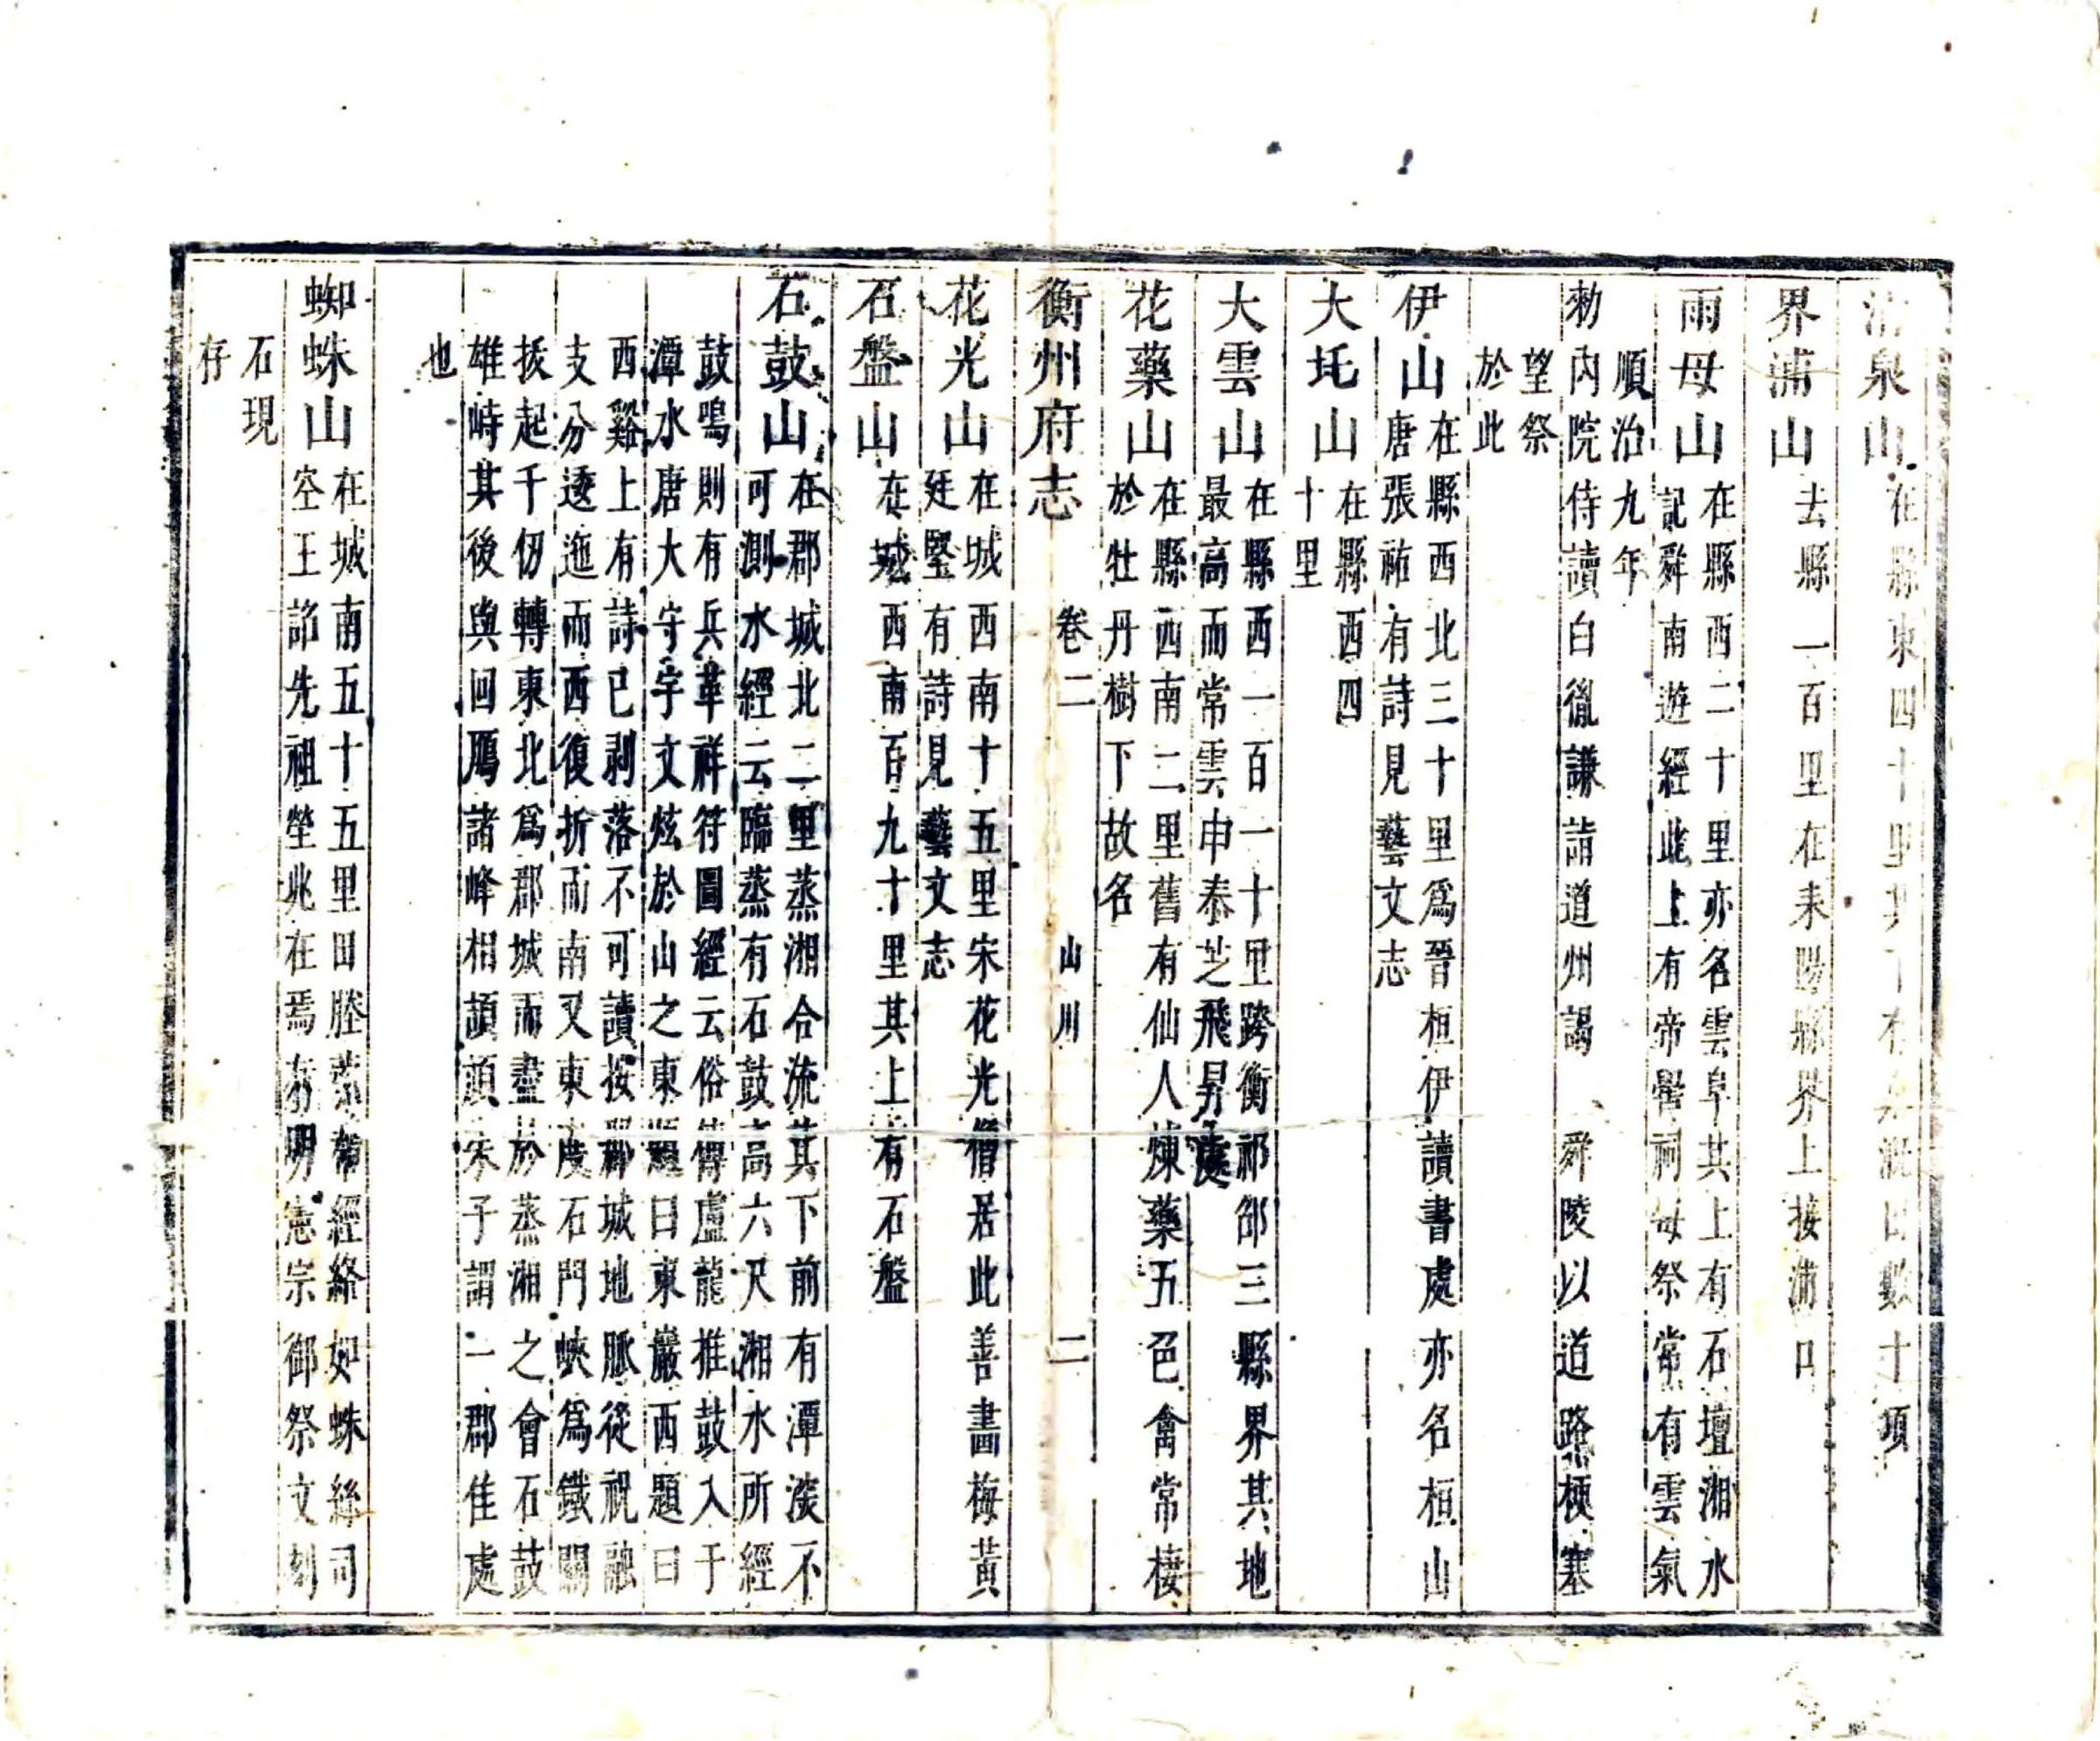 清泉山在縣東四十里其下有泉漑田數十頃
界浦山去縣一百里在耒陽縣界上接浦口
雨母山在縣西二十里亦名雲阜其上有石壇湘水
記舜南遊經此上有帝嚳祠每祭常有雲氣
順治九年
勑內院侍讀白胤謙詣道州謁
舜陵以道路梗塞
望祭
於此
伊山在縣西北三十里爲晉桓伊讀書處亦名桓山
唐張祐有詩見藝文志
大圫山在縣西四
十里
大雲山在縣西一百一十里跨衡祁邵三縣界其地
最高而常雲申泰芝飛昇處
花藥山在縣西南二里舊有仙人煉藥五色禽常棲
於牡丹樹下故名
衡州府志 卷二 山川 二
花光山在城西南十五里宋花光僧居此善畫梅黃
廷堅有詩見藝文志
石盤山在城西南百九十里其上有石盤
石鼓山在郡城北二里蒸湘合流其下前有潭深不
可測水經云臨蒸有石鼓高六尺湘水所經
鼓鳴則有兵革祥符圖經云俗傳盧龍推鼓入于
潭水唐大守宇文炫於山之東題曰東巖西題曰
西谿上有詩已剥落不可讀按郡城地脈從祝融
支分逶迤而西復折而南又東度石門峽爲鐵關
拔起千仞轉東北爲郡城而盡於蒸湘之會石鼓
雄峙其後與回鴈諸峰相頡頏朱子謂一郡佳處
也
蜘蛛山在城南五十五里田塍縈帶經絡如蛛絲司
空王詔先祖塋兆在焉有明憲宗御祭文刻
石現
存